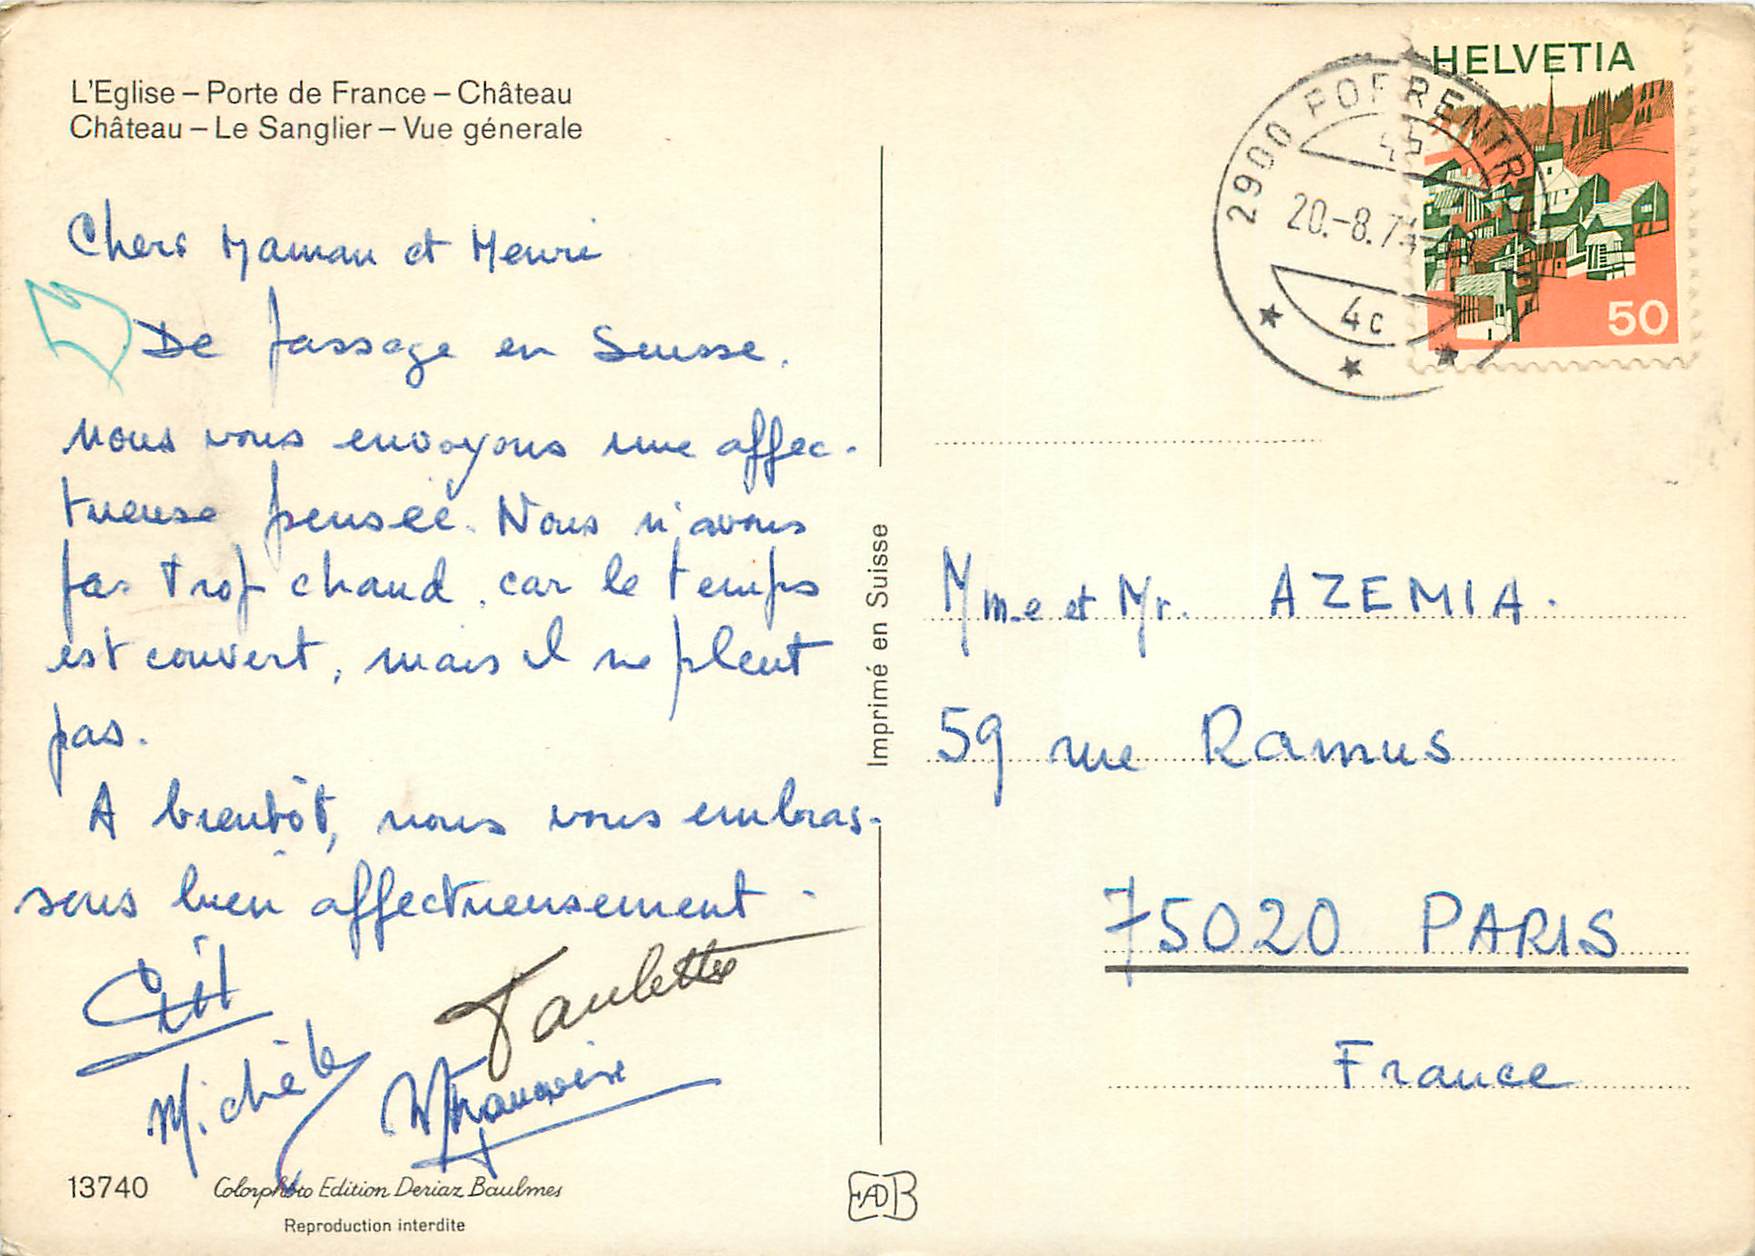 L'Eglise – Porte de France – Château
Château – Le Sanglier – Vue génerale
Chers Maman et Henri
De passage en Suisse,
nous vous envoyons une affec-
tueuse pensée. Nous n'avons
pas trop chaud, car le temps
est couvert, mais il ne pleut
pas.
A bientôt, nous vous embras-
sons bien affectueusement.
Paulette
Michèle
Françoise
13740
Colorphoto Edition Deriaz Baulmes
Reproduction interdite
Imprimé en Suisse
EDB
HELVETIA
50
2900 PORRENTRUY
20.-8.7
4c
Mme et Mr. AZEMIA.
59 rue Ramus
75020 PARIS
France